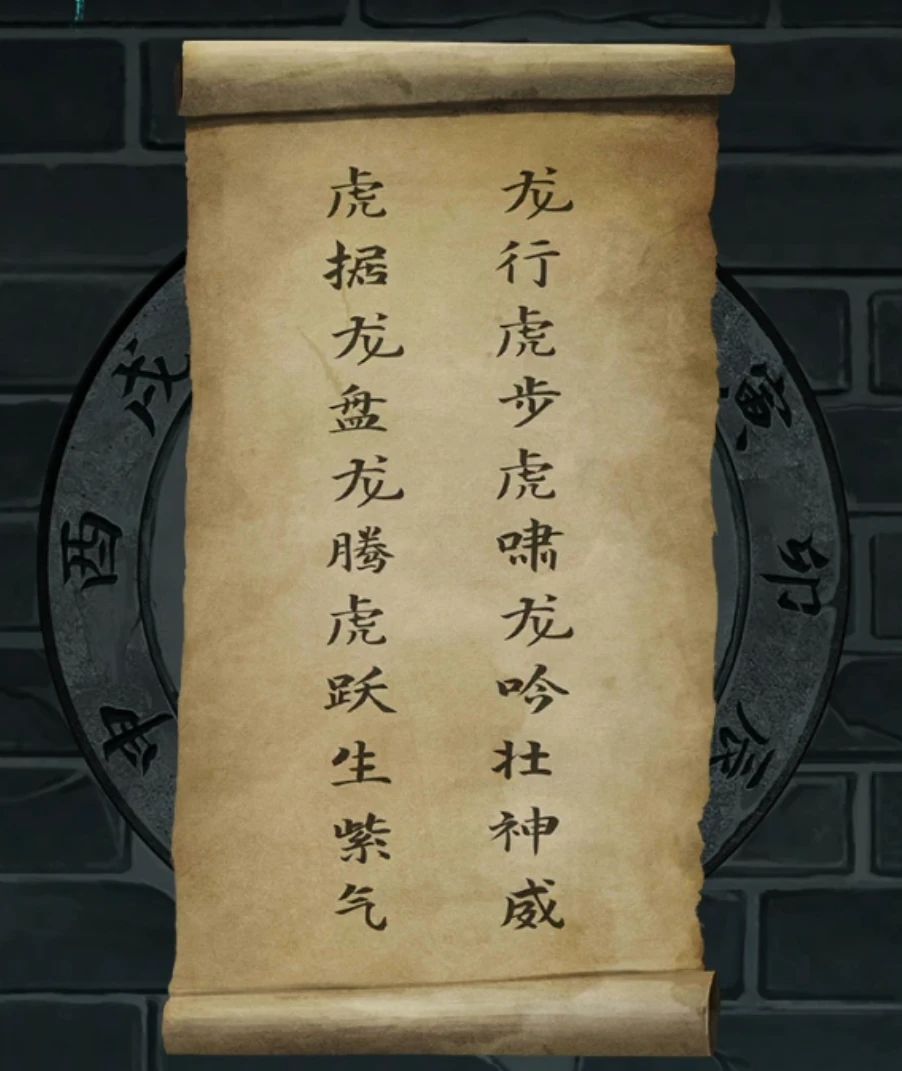 龙行虎步虎啸龙吟壮神威
虎据龙盘龙腾虎跃生紫气
寅
卯
辰
申
酉
戌